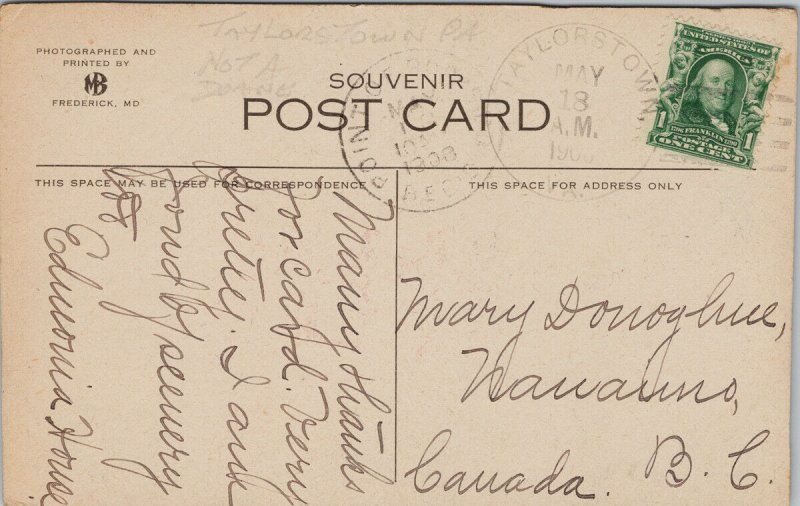 TAYLORSTOWN PA
NOT A
DOANE
PHOTOGRAPHED AND
PRINTED BY
MB
FREDERICK, MD
SOUVENIR
POST CARD
POINT
1908
REC'D
TAYLORSTOWN
MAY
18
A.M.
1908
PA.
UNITED STATES OF
AMERICA
1706 FRANKLIN 1790
1 1
ONE CENT
THIS SPACE MAY BE USED FOR CORRESPONDENCE
THIS SPACE FOR ADDRESS ONLY
Many thanks
for card. Very
pretty. I am
fond of scenery
Edmonia House
Mary Donoghue,
Nanaimo,
Canada. B. C.